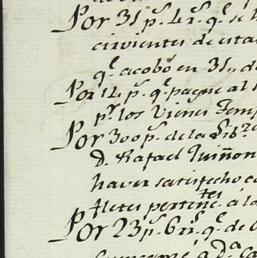 Por 31 p.s 4 r.s q.e se
cirvientes de esta
q.e acabó en 31,, d
Por 14 p.s q.e pagué al s
p.r los Vienes Temp
Por 300 p.s de la Lib.za
D. Rafael Quiñon
haver satisfecho
fletes pertenec.tes á lo
Por 23 p.s 6 r.s q.e de